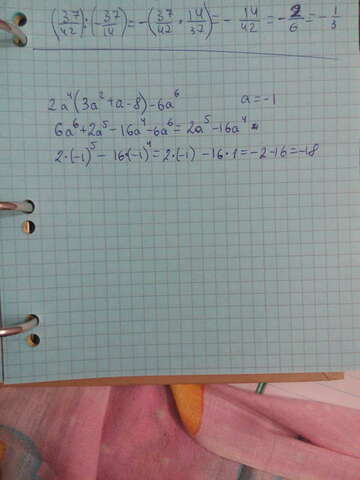 (37/42):(-37/14)=-(37/42·14/37)=-14/42=-2/6=-1/3
2a⁴(3a²+a-8)-6a⁶ a=-1
6a⁶+2a⁵-16a⁴-6a⁶=2a⁵-16a⁴=
2·(-1)⁵-16·(-1)⁴=2·(-1)-16·1=-2-16=-18